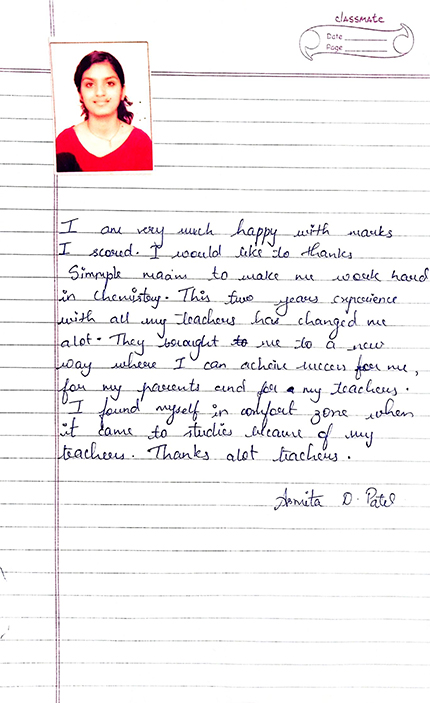 classmate
Date
Page
I am very much happy with marks
I scored. I would like to thanks
Simmple maam to make me work hard
in chemistry. This two years experience
with all my teachers has changed me
alot. They bought to me to a new
way where I can acheive success for me,
for my parents and for my teachers.
I found myself in comfort zone when
it came to studies because of my
teachers. Thanks alot teachers.
Asmita D. Patel